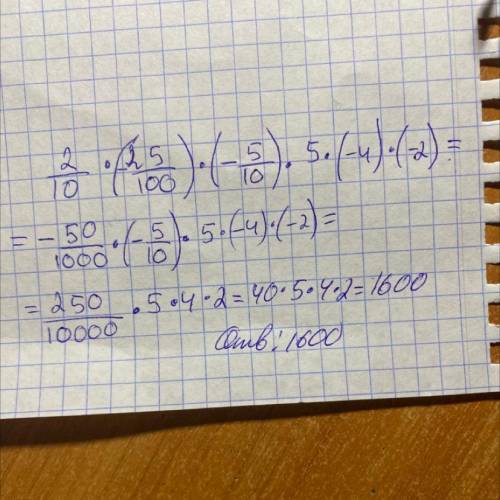 2/10 · (-25/100) · (-5/10) · 5 · (-4) · (-2) =
= - 50/1000 · (-5/10) · 5 · (-4) · (-2) =
= 250/10000 · 5 · 4 · 2 = 40 · 5 · 4 · 2 = 1600
Отв: 1600